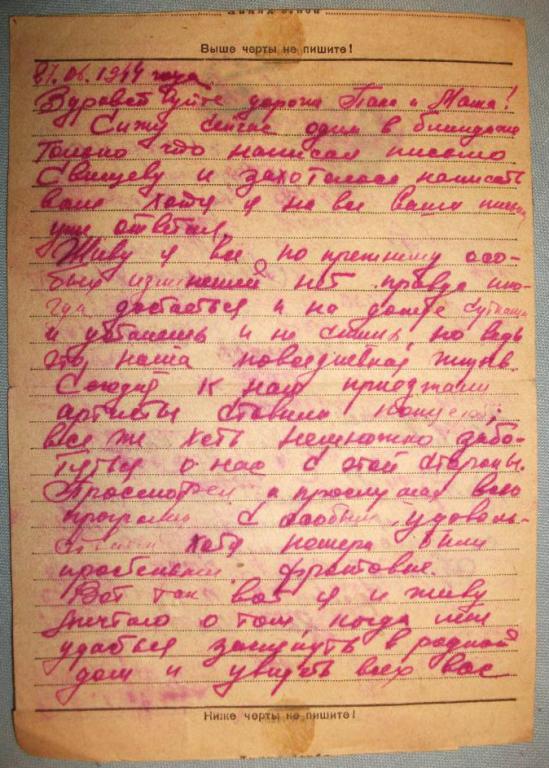 Выше черты не пишите!
27.06.1944 года
Здравствуйте дорогие Папа и Маша!
Сижу сейчас один в блиндаже
только что написал письмо
Свищеву и захотелось написать
вам хотя я на все ваши письма
уже ответил.
Живу я все по прежнему осо-
бых изменений нет правда ино-
гда достается и на дожде сутками
и устанешь и не спишь, но ведь
это наша повседневная жизнь.
Сегодня к нам приезжали
артисты ставили концерт
все же хоть немножко забо-
тутся о нас с этой стороны.
Просмотрел и прослушал всю
программу с особым удоволь-
ствием хотя номера были
простенькие, фронтовые.
Вот так вот я и живу
мечтаю о том, когда мне
удастся заглянуть в родной
дом и увидеть всех вас
Ниже черты не пишите!